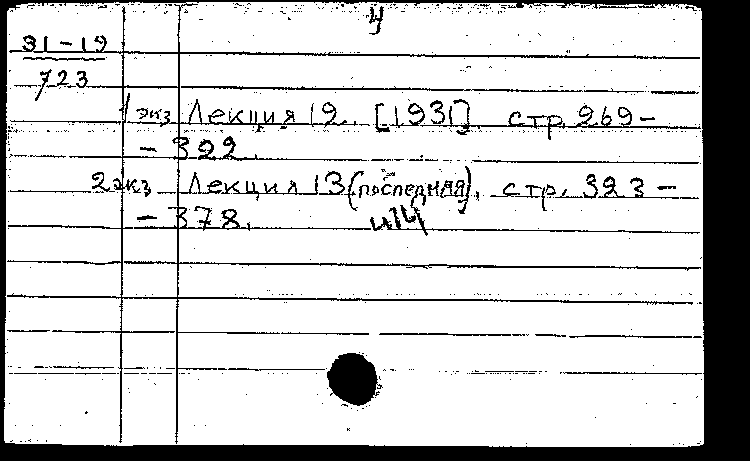 4
31-19
723
1 экз Лекция 12. [1931]. стр. 269-
- 322.
2 экз Лекция 13 (последняя), стр. 323-
- 378.